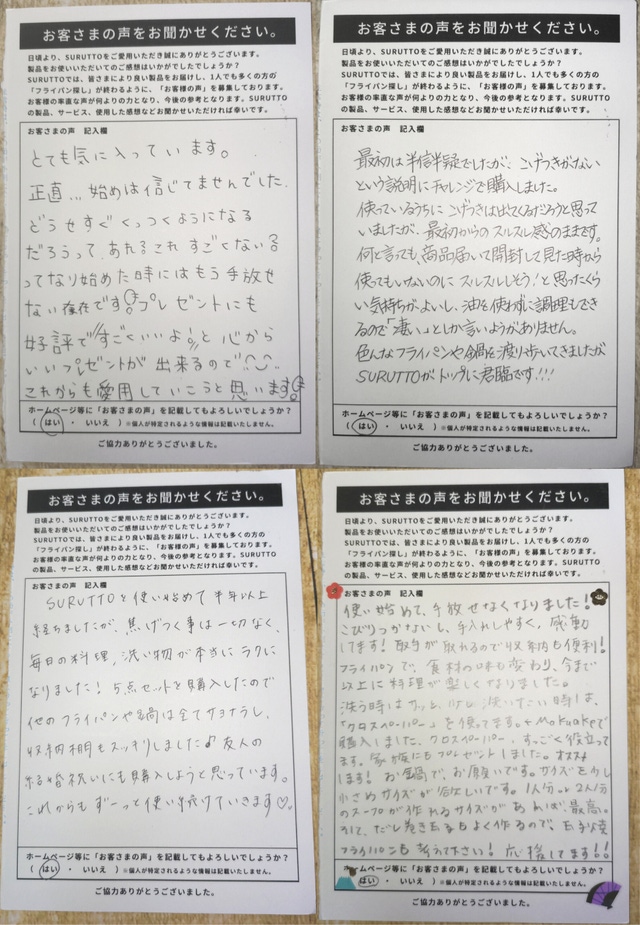 お客さまの声をお聞かせください。
日頃より、SURUTTOをご愛用いただき誠にありがとうございます。
製品をお使いいただいてのご感想はいかがでしたでしょうか？
SURUTTOでは、皆さまにより良い製品をお届けし、1人でも多くの方の
「フライパン探し」が終わるように、「お客様の声」を募集しております。
お客様の率直な声が何よりの力となり、今後の参考となります。SURUTTO
の製品、サービス、使用した感想などお聞かせいただければ幸いです。
お客さまの声　記入欄
とても気に入っています。
正直…始めは信じてませんでした
どうせすぐくっつくようになる
だろうって、あれ？これ すごくない？
ってなり始めた時にはもう手放せ
ない存在です！プレゼントにも
好評で「すごくいいよ！」と心から
いいプレゼントが出来るので
これからも愛用していこうと思います！
ホームページ等に「お客さまの声」を記載してもよろしいでしょうか？
（ はい ・ いいえ ）※個人が特定されるような情報は記載いたしません。
ご協力ありがとうございました。
お客さまの声をお聞かせください。
日頃より、SURUTTOをご愛用いただき誠にありがとうございます。
製品をお使いいただいてのご感想はいかがでしたでしょうか？
SURUTTOでは、皆さまにより良い製品をお届けし、1人でも多くの方の
「フライパン探し」が終わるように、「お客様の声」を募集しております。
お客様の率直な声が何よりの力となり、今後の参考となります。SURUTTO
の製品、サービス、使用した感想などお聞かせいただければ幸いです。
お客さまの声　記入欄
最初は半信半疑でしたが、こげつきがない
という説明にチャレンジで購入しました。
使っているうちに こげつきは出てくるだろうと思って
いましたが、最初からのスルスル感のままです。
何と言っても、商品届いて開封して見た時から
使ってもいないのに スルスルしそう！と思ったくら
い気持ちがよいし、油を使わずに調理もでき
るので「凄い」としか言いようがありません。
色んなフライパンや鍋を渡り歩いてきましたが
SURUTTOが、トップに君臨です!!!
ホームページ等に「お客さまの声」を記載してもよろしいでしょうか？
（ はい ・ いいえ ）※個人が特定されるような情報は記載いたしません。
ご協力ありがとうございました。
お客さまの声をお聞かせください。
日頃より、SURUTTOをご愛用いただき誠にありがとうございます。
製品をお使いいただいてのご感想はいかがでしたでしょうか？
SURUTTOでは、皆さまにより良い製品をお届けし、1人でも多くの方の
「フライパン探し」が終わるように、「お客様の声」を募集しております。
お客様の率直な声が何よりの力となり、今後の参考となります。SURUTTO
の製品、サービス、使用した感想などお聞かせいただければ幸いです。
お客さまの声　記入欄
SURUTTOを使い始めて 半年以上
経ちましたが、焦げつく事は一切なく、
毎日の料理、洗い物が本当にラクに
なりました！ 5点セットを購入したので
他のフライパンや鍋は全てサヨナラし、
収納棚もスッキリしました♪ 友人の
結婚祝いにも購入しようと思っています。
これからもずーっと使い続けていきます♡。
ホームページ等に「お客さまの声」を記載してもよろしいでしょうか？
（ はい ・ いいえ ）※個人が特定されるような情報は記載いたしません。
ご協力ありがとうございました。
お客さまの声をお聞かせください。
日頃より、SURUTTOをご愛用いただき誠にありがとうございます。
製品をお使いいただいてのご感想はいかがでしたでしょうか？
SURUTTOでは、皆さまにより良い製品をお届けし、1人でも多くの方の
「フライパン探し」が終わるように、「お客様の声」を募集しております。
お客様の率直な声が何よりの力となり、今後の参考となります。SURUTTO
の製品、サービス、使用した感想などお聞かせいただければ幸いです。
お客さまの声　記入欄
使い始めて、手放せなくなりました！
こびりつかないし、手入れしやすく、感動
してます！取手が取れるので収納も便利！
フライパンで、食材の味も変わり、今まで
以上に料理が楽しくなりました。
洗う時はサッと、少し洗いたい時は、
「クロスペーパー」を使ってます。Makuakeで
購入しました、クロスペーパー、すっごく役立って
ます。家族にもプレゼントしました。オススメ
します！お鍋で、お願いです。サイズを少し
小さめサイズが欲しいです。1人分、2人分
のスープが作れるサイズがあれば、最高。
そして、だし巻き玉子もよく作るので、玉子焼
フライパンも考えて下さい！応援してます!!
ホームページ等に「お客さまの声」を記載してもよろしいでしょうか？
（ はい ・ いいえ ）※個人が特定されるような情報は記載いたしません。
ご協力ありがとうございました。